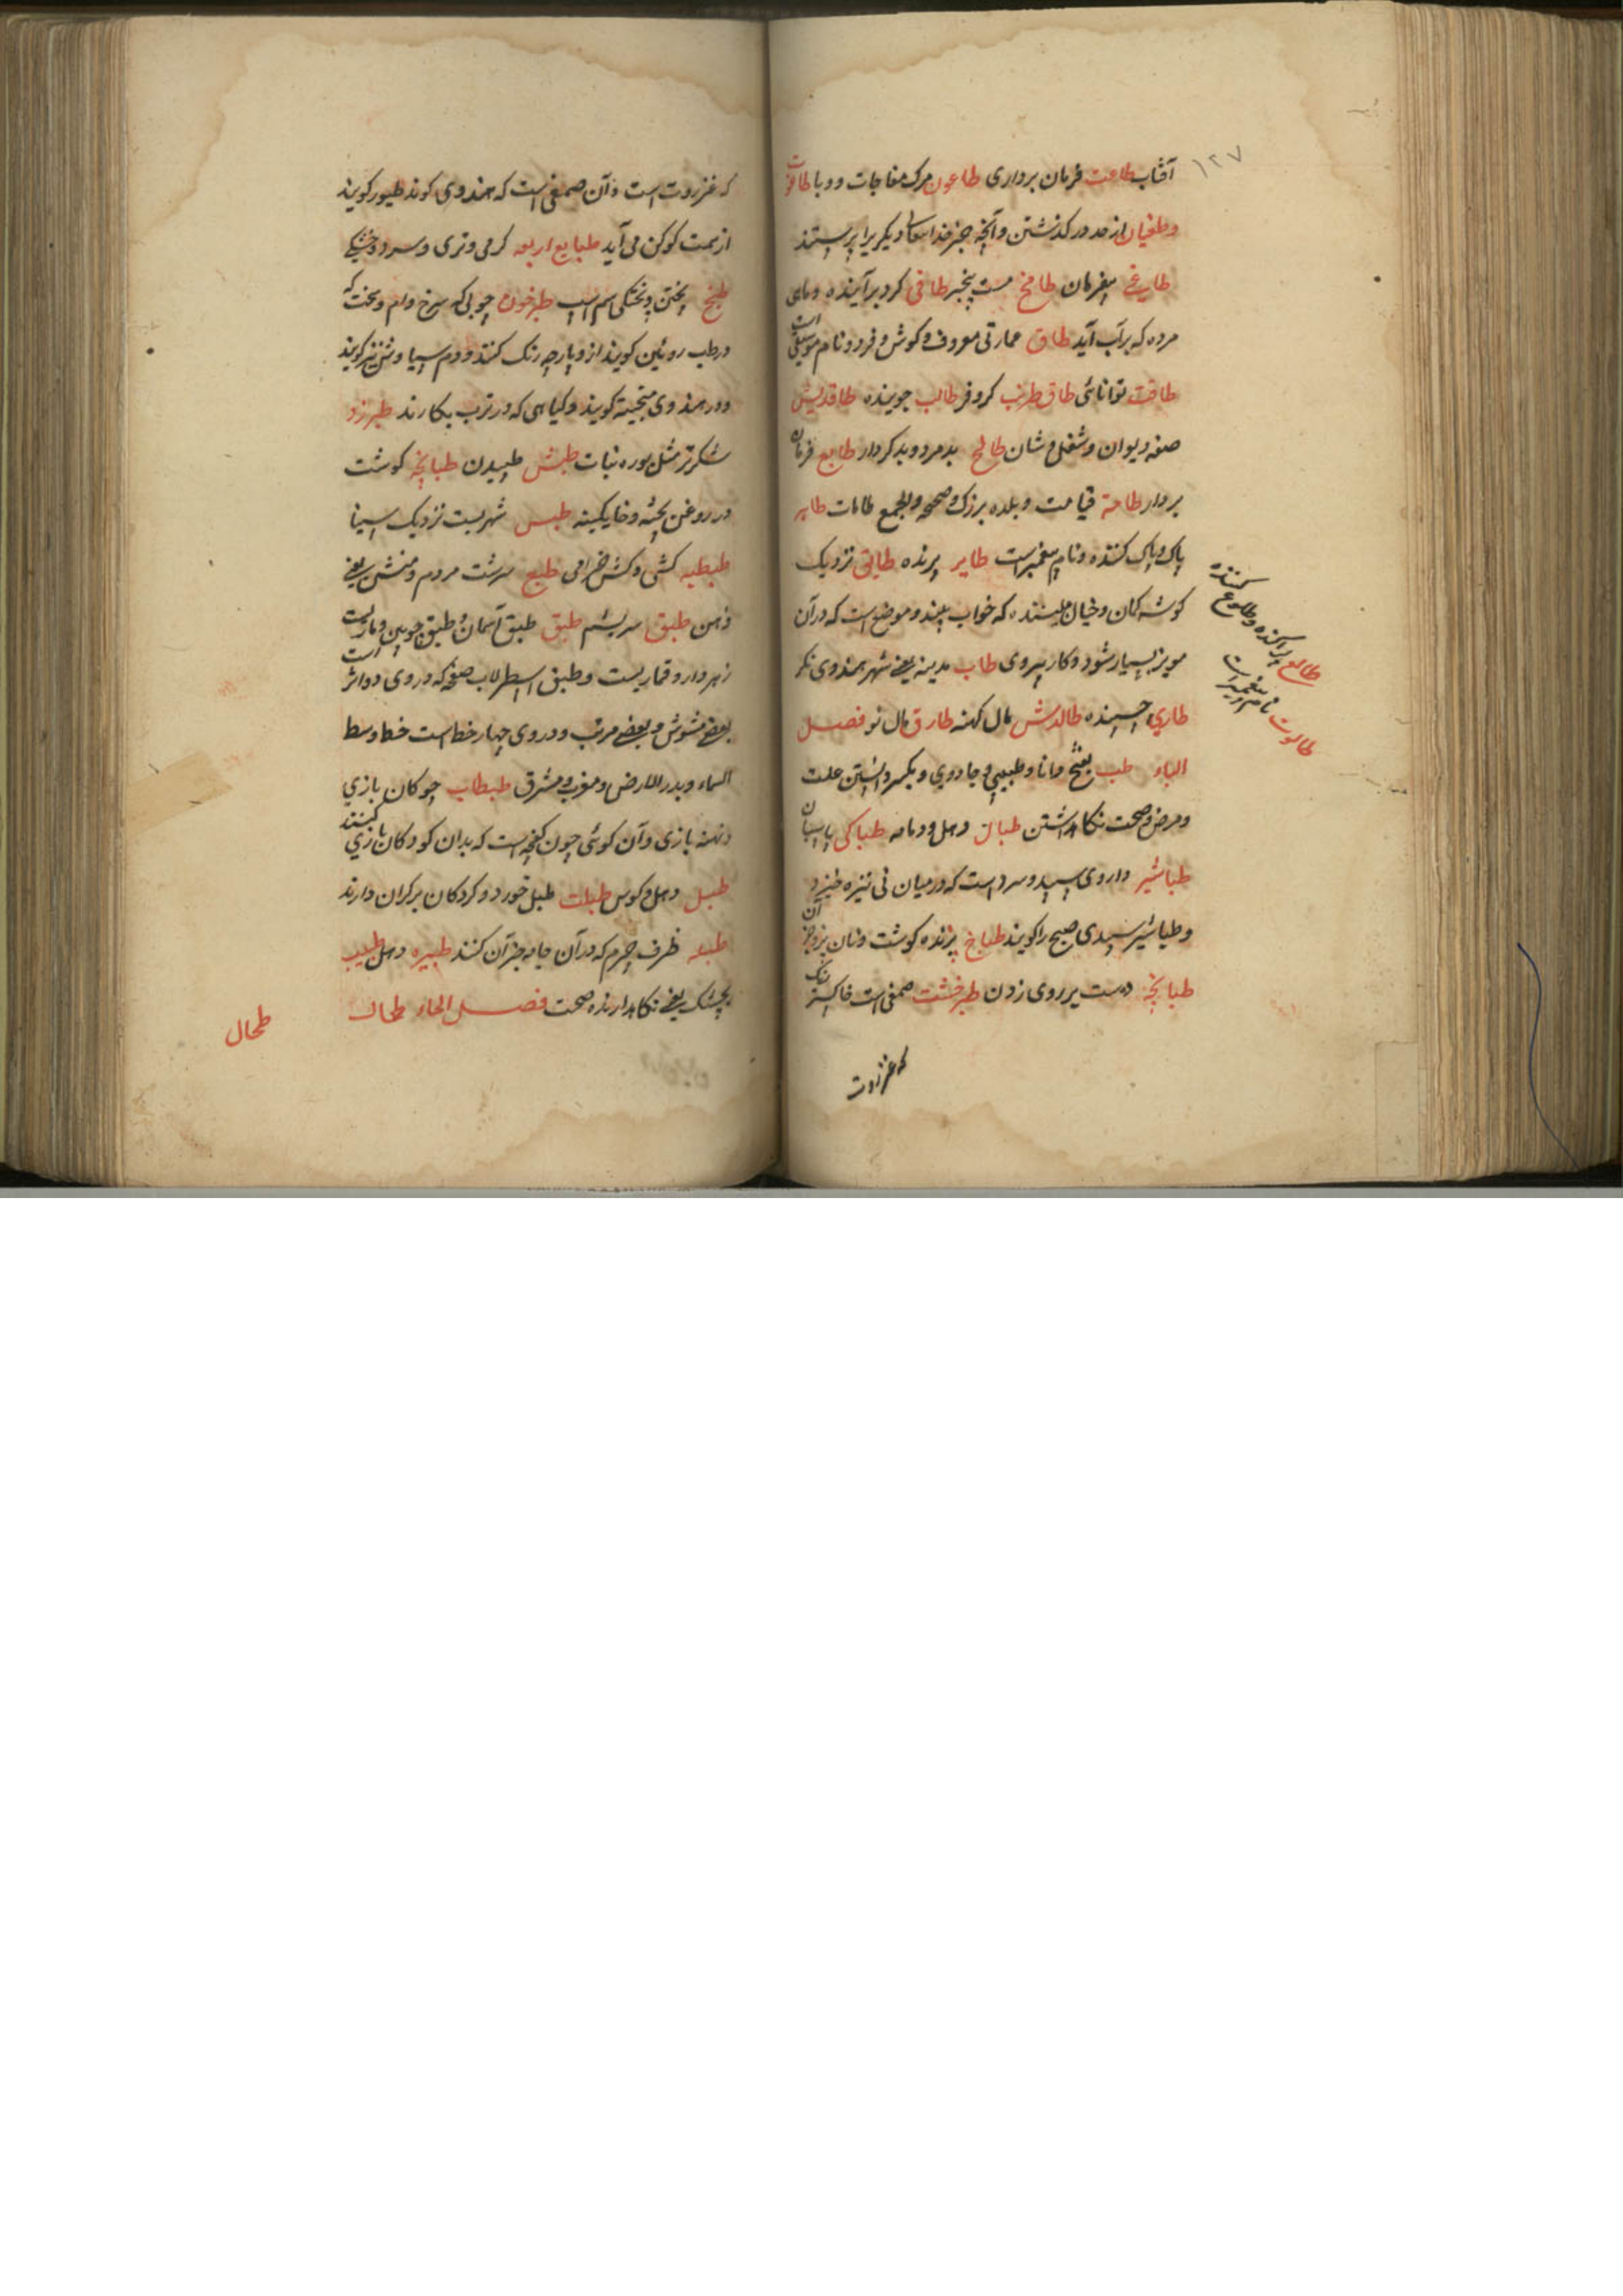 ۱۲۷
آفتاب طاعت فرمان برداری طاعون مرک مفاجات و وبا طاغوت
وطغیان از حد در کذشتن وآنچه جز خداستعالی دیکریرا پرستند
طاغی بیفرمان طامخ مست بیخبر طافی کرد برآینده وماهی
مرده که بر آب آید طاق عمارتی معروف وکوش وفرد ونام موسیقی است
طاقت توانائی طاق طرنب کروفر طالب جوینده طاقدیش
صفه وایوان وشغل وشان طالح بدمرد وبدکردار طایع فرمان
بردار طامة قیامت وبلده بزرک وصیحه والجمع طامات طاهر
پاک وپاک کننده ونام پیغمبرست طایر پرنده طائف نزدیک
کوشه کمان وخیال بیننده که خواب بیند وموضع است که درآن
مویز بسیار شود وکار بیروی طاب مدینه یعنی شهر بهندوی نکر
طاری حسنده طالدش مال کهنه طارق مال نو فصل
الباء طب بفتح دانا وطبیبی وجادوی وبکسر دانستن علت
ومرض وصحت نکاهداشتن طبال دهل ودمامه طباکی پاسبان
طباشیر داروی سپید وسرد است که درمیان نی نیزه خیزد
وطباشیر سپیدی صبح را کویند طباخ پزنده کوشت ونان وجز آن
طبانچه دست بر روی زدن طبرخشت صمغی است خاکستر رنک
که غزروت
طالع براینده وطلوع کننده
طالوت نام پیغمبریست
که غزروت است وآن صمغی است که بهندوی کوند طیور کویند
از سمت کوکن می آید طبایع اربعه کرمی وتری وسردی وخشکی
طبخ پختن وپختکی اسم است طبرخون چوبی که سرخ وام وسخت که
در طب روئین کویند ازو پارچه رنک کنند ودم سیاوشن نیز کویند
ودر هندوی مجیته کویند وکیاهی که در ترب بکارند طبرزد
شکر تر مثل بوره نبات طبش طپیدن طبانچه کوشت
در روغن پخته وخایکینه طبس شهریست نزدیک سینا
طبطبه کشی وکش خرامی طبع سرشت مردم ومنش یعنی
ذهن طبق سریشم طبق طبق آسمان وطبق چوبین وماریست
زهردار وقماریست وطبق اسطرلاب صفحه که دروی دوائر است
بعضی مشوش وبعضی مرتب ودروی چهار خط است خط وسط
السماء وبدر الارض ومغرب ومشرق طبطاب چوکان بازی
ونهنه بازی وآن کوئی چون کفچه است که بدان کودکان بازی کنند
طبل دهل وکوس طبلت طبل خورد وکردکان برکران دارند
طبله ظرف چرم که درآن جامه جز آن کنند طبیره دهل طبیب
پچشک یعنی نکاهدارنده صحت فصل الحاء طحال
طحال